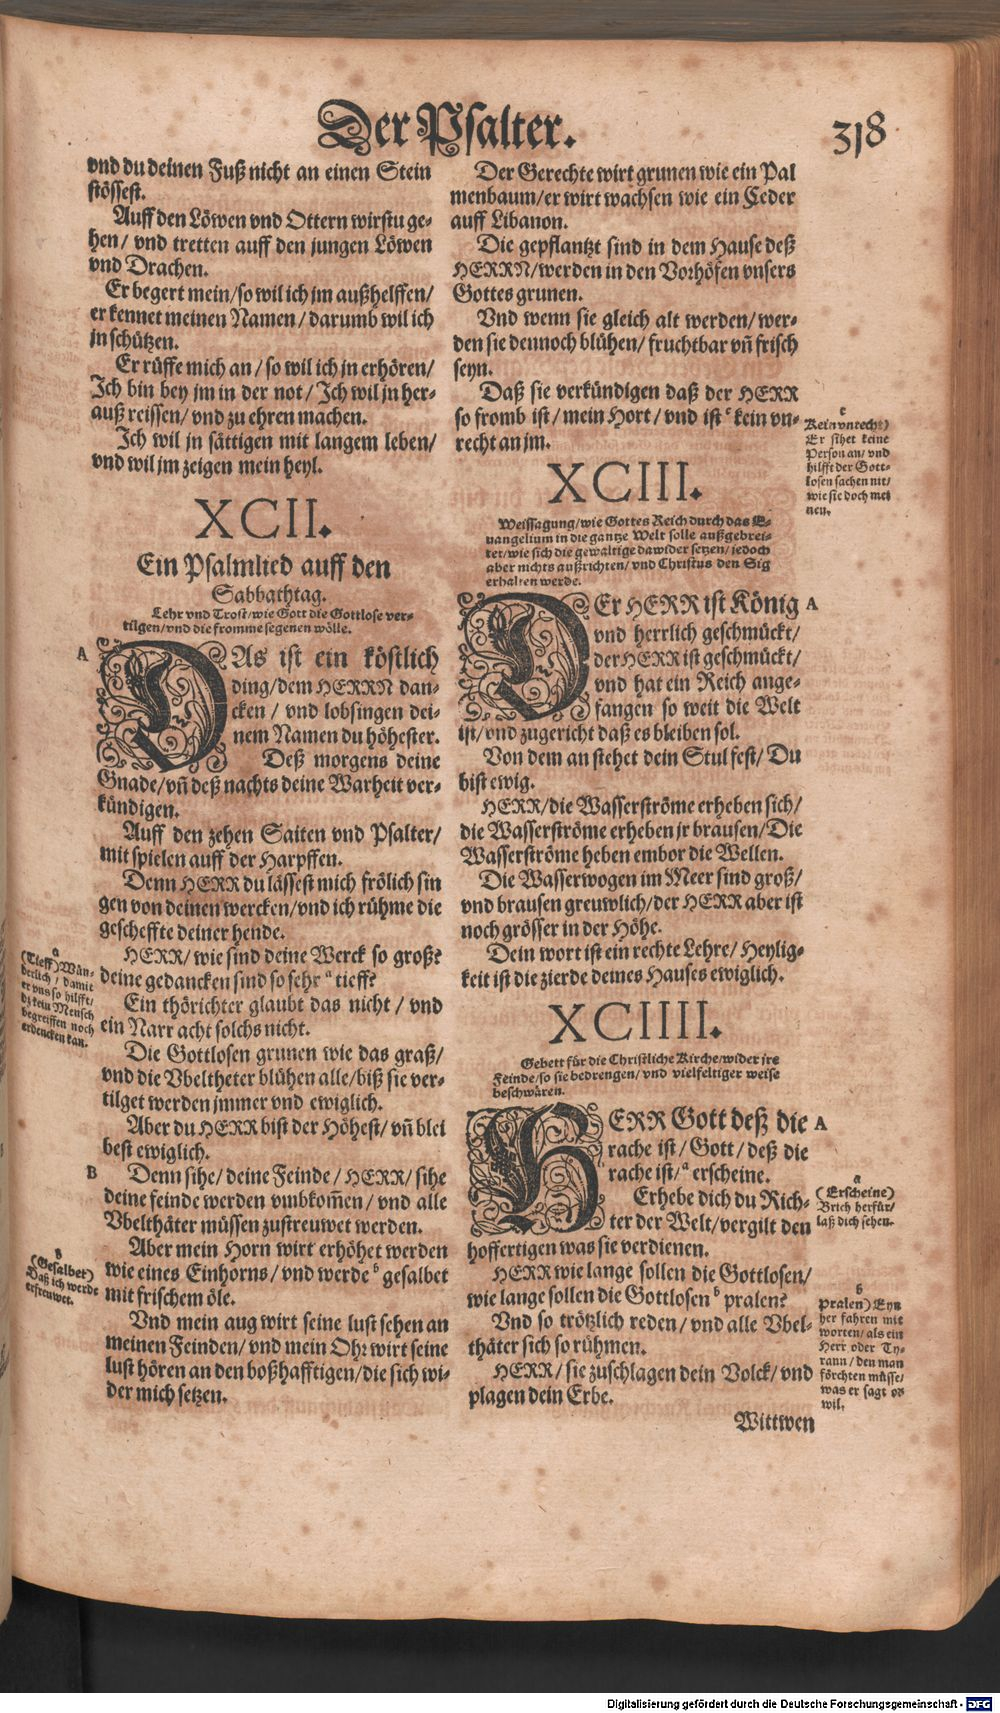 Der Psalter.
318
vnd du deinen Fuß nicht an einen Stein
stössest.
Auff den Löwen vnd Ottern wirstu ge-
hen/ vnd tretten auff den jungen Löwen
vnd Drachen.
Er begert mein/so wil ich jm außhelffen/
er kennet meinen Namen/ darumb wil ich
jn schützen.
Er rüffe mich an/ so wil ich jn erhören/
Ich bin bey jm in der not/ Ich wil jn her-
auß reissen/ vnd zu ehren machen.
Ich wil jn sättigen mit langem leben/
vnd wil jm zeigen mein heyl.
XCII.
Ein Psalmlied auff den
Sabbathtag.
Lehr vnd Trost/wie Gott die Gottlose ver-
tilgen/vnd die fromme segenen wölle.
A
DAs ist ein köstlich
ding/dem HERRN dan-
cken/ vnd lobsingen dei-
nem Namen du höhester.
Deß morgens deine
Gnade/vñ deß nachts deine Warheit ver-
kündigen.
Auff den zehen Saiten vnd Psalter/
mit spielen auff der Harpffen.
Denn HERR du lässest mich frölich sin
gen von deinen wercken/vnd ich rühme die
gescheffte deiner hende.
HERR/ wie sind deine Werck so groß?
deine gedancken sind so sehr a tieff?
Ein thörichter glaubt das nicht/ vnd
ein Narr acht solchs nicht.
Die Gottlosen grunen wie das graß/
vnd die Vbeltheter blühen alle/biß sie ver-
tilget werden jmmer vnd ewiglich.
Aber du HERR bist der Höhest/ vñ blei
best ewiglich.
B
Denn sihe/ deine Feinde/ HERR/ sihe
deine feinde werden vmbkom̃en/ vnd alle
Vbelthäter müssen zustreuwet werden.
Aber mein Horn wirt erhöhet werden
wie eines Einhorns/ vnd werde b gesalbet
mit frischem öle.
Vnd mein aug wirt seine lust sehen an
meinen Feinden/ vnd mein Ohr wirt seine
lust hören an den boßhafftigen/die sich wi-
der mich setzen.
a
(Tieff) Wün-
derlich/ damit
er vns so hilfft/
dz kein Mensch
begreiffen noch
erdencken kan.
b
(Gesalbet)
Daß ich werde
erfreuwet.
Der Gerechte wirt grunen wie ein Pal
menbaum/er wirt wachsen wie ein Ceder
auff Libanon.
Die gepflantzt sind in dem Hause deß
HERRN/werden in den Vorhöfen vnsers
Gottes grunen.
Vnd wenn sie gleich alt werden/ wer-
den sie dennoch blühen/ fruchtbar vñ frisch
seyn.
Daß sie verkündigen daß der HERR
so fromb ist/ mein Hort/ vnd ist c kein vn-
recht an jm.
c
Kein vnrecht)
Er sihet keine
Person an/ vnd
hilfft der Gott-
losen sachen nit/
wie sie doch mei
nen.
XCIII.
Weissagung/wie Gottes Reich durch das E-
uangelium in die gantze Welt solle außgebrei-
tet/wie sich die gewaltige dawider setzen/ jedoch
aber nichts außrichten/ vnd Christus den Sig
erhalten werde.
DEr HERR ist König A
vnd herrlich geschmückt/
der HERR ist geschmückt/
vnd hat ein Reich ange-
fangen so weit die Welt
ist/vnd zugericht daß es bleiben sol.
Von dem an stehet dein Stul fest/ Du
bist ewig.
HERR/die Wasserströme erheben sich/
die Wasserströme erheben jr brausen/Die
Wasserströme heben embor die Wellen.
Die Wasserwogen im Meer sind groß/
vnd brausen greuwlich/der HERR aber ist
noch grösser in der Höhe.
Dein wort ist ein rechte Lehre/ Heylig-
keit ist die zierde deines Hauses ewiglich.
XCIIII.
Gebett für die Christliche Kirche/wider jre
Feinde/so sie bedrengen/ vnd vielfeltiger weise
beschwären.
HERR Gott deß die A
rache ist/ Gott/ deß die
rache ist/ a erscheine.
Erhebe dich du Rich-
ter der Welt/vergilt den
hoffertigen was sie verdienen.
HERR wie lange sollen die Gottlosen/
wie lange sollen die Gottlosen b pralen?
Vnd so trötzlich reden/ vnd alle Vbel-
thäter sich so rühmen.
HERR/ sie zuschlagen dein Volck/ vnd
plagen dein Erbe.
a
(Erscheine)
Brich herfür/
laß dich sehen.
b
Pralen) Eyn
her fahren mit
worten/ als ein
Herr oder Ty-
rann/ den man
förchten müsse/
was er sagt or
wil.
Wittwen
Digitalisierung gefördert durch die Deutsche Forschungsgemeinschaft - DFG